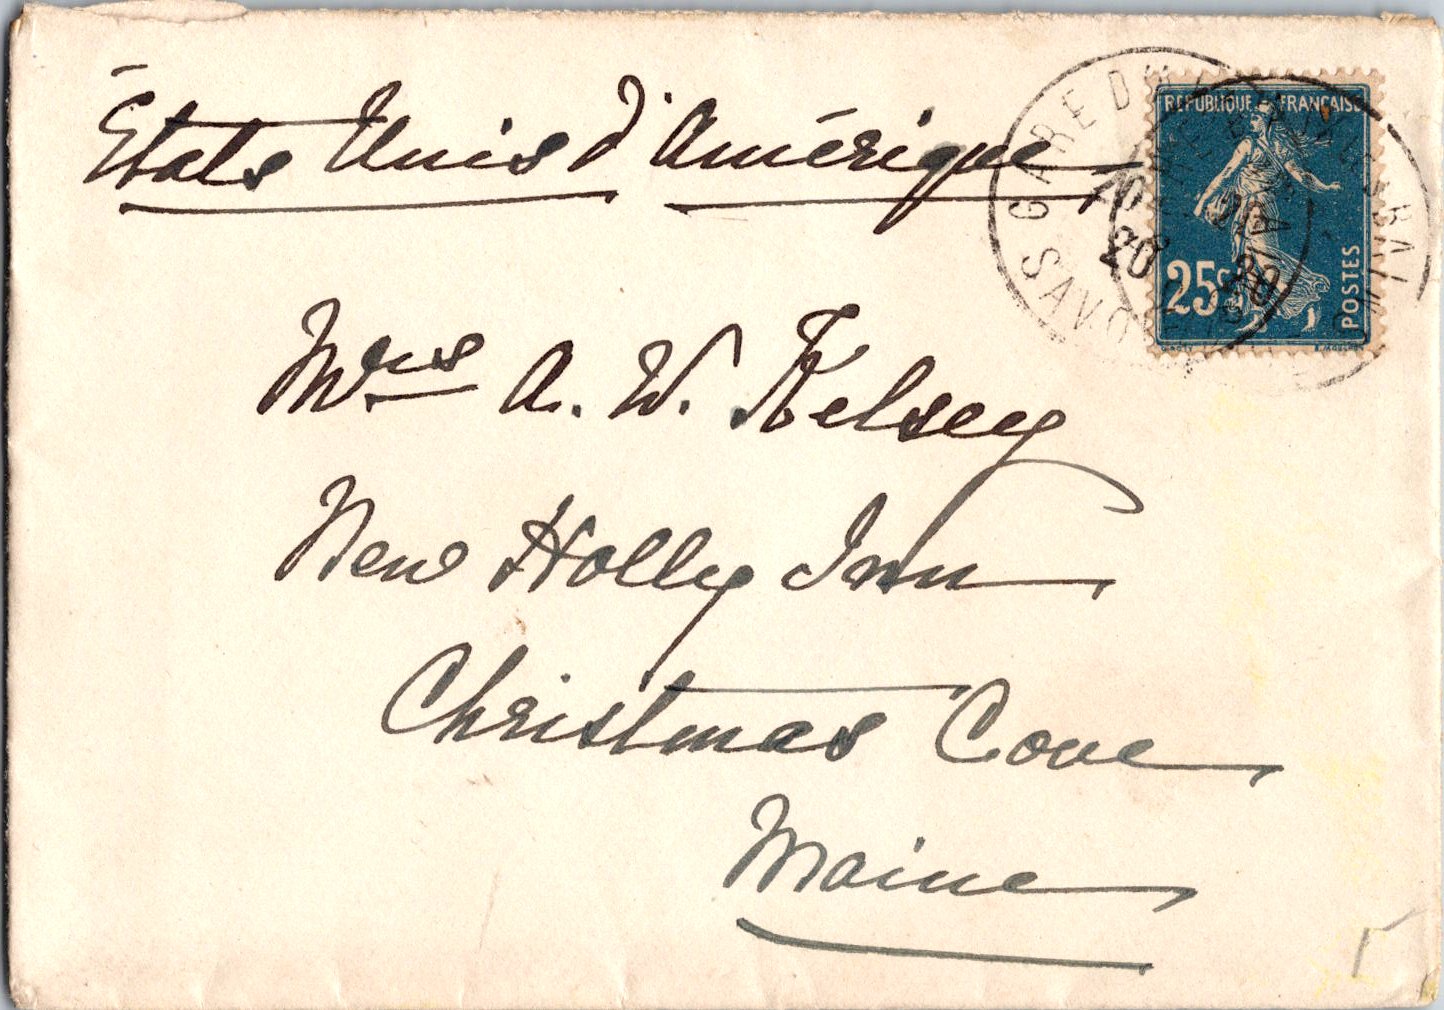 États Unis d'Amérique
RÉPUBLIQUE FRANÇAISE
25c
POSTES
GARE D
SAVOIE
20
Mrs A. W. Kelsey
New Holly Inn
Christmas Cove
Maine